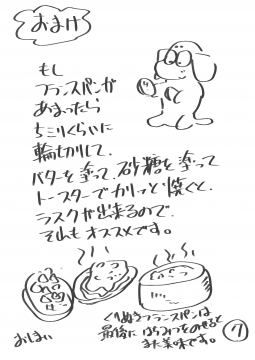 おまけ
もし
フランスパンが
あまったら
5ミリくらいに
輪切りして、
バターを塗って、砂糖を塗って
トースターでカリッと焼くと、
ラスクが出来るので
それもオススメです。
くりぬきフランスパンは
最後にはちみつをのせると
また美味です。
おしまい
7